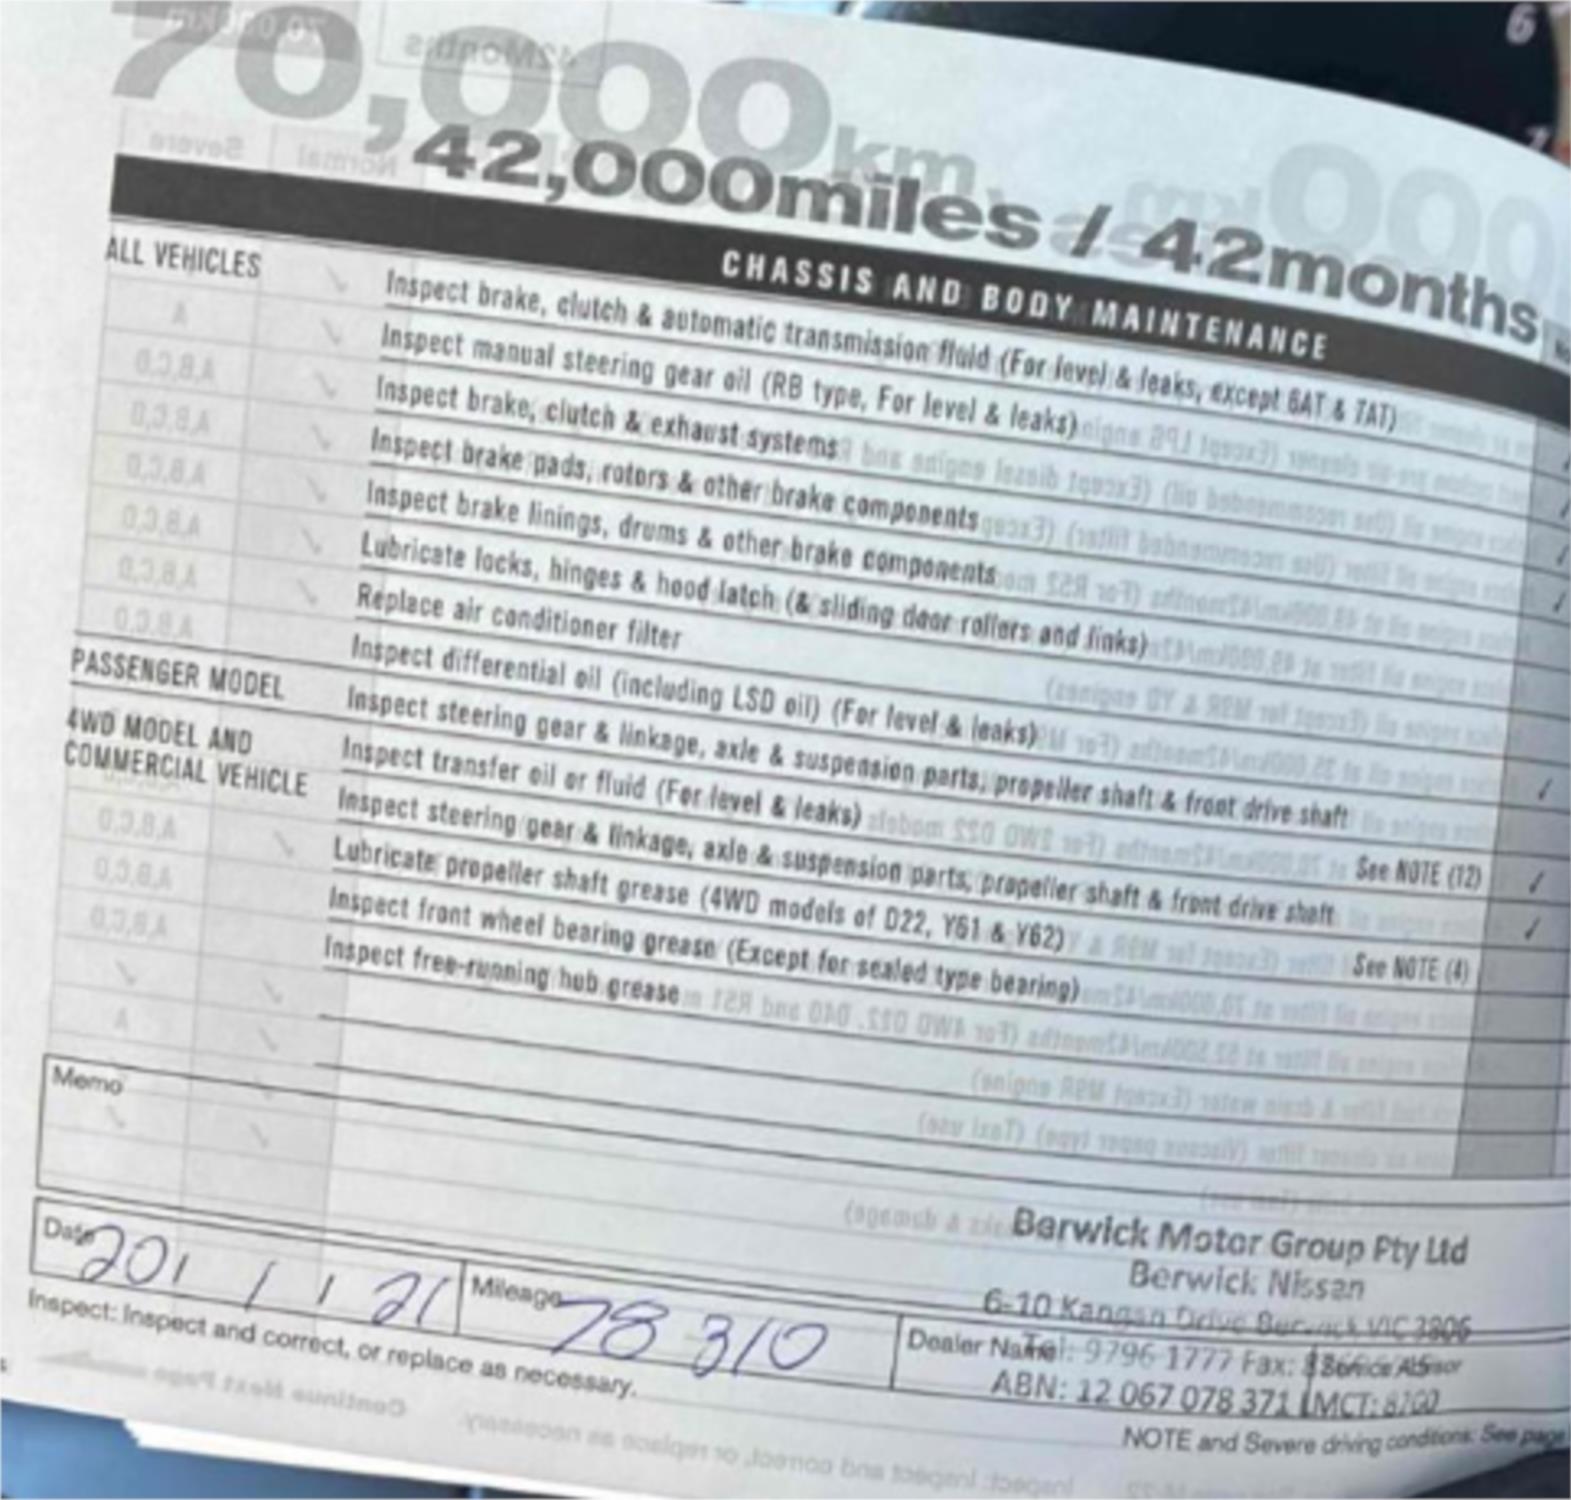 70,000km
42,000miles / 42months
CHASSIS AND BODY MAINTENANCE
ALL VEHICLES
Inspect brake, clutch & automatic transmission fluid (For level & leaks, except 6AT & 7AT)
Inspect manual steering gear oil (RB type, For level & leaks)
Inspect brake, clutch & exhaust systems
Inspect brake pads, rotors & other brake components
Inspect brake linings, drums & other brake components
Lubricate locks, hinges & hood latch (& sliding door rollers and links)
Replace air conditioner filter
Inspect differential oil (including LSD oil) (For level & leaks)
PASSENGER MODEL
Inspect steering gear & linkage, axle & suspension parts, propeller shaft & front drive shaft
4WD MODEL AND
COMMERCIAL VEHICLE
Inspect transfer oil or fluid (For level & leaks)
See NOTE (12)
Inspect steering gear & linkage, axle & suspension parts, propeller shaft & front drive shaft
Lubricate propeller shaft grease (4WD models of D22, Y61 & Y62)
See NOTE (4)
Inspect front wheel bearing grease (Except for sealed type bearing)
Inspect free-running hub grease
Memo
Berwick Motor Group Pty Ltd
Berwick Nissan
6-10 Kangan Drive Berwick VIC 3806
Date 20/ / / 21
Mileage 78 310
Dealer Name
Tel: 9796 1777 Fax:
Service Advisor
ABN: 12 067 078 371 LMCT: 8700
Inspect: Inspect and correct, or replace as necessary.
NOTE and Severe driving conditions: See page